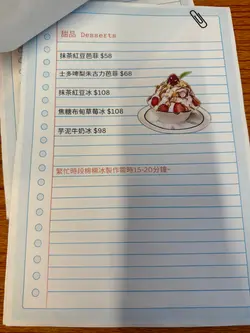 甜品 Desserts
抹茶紅豆芭菲 $58
士多啤梨朱古力芭菲 $68
抹茶紅豆冰 $108
焦糖布甸草莓冰 $108
芋泥牛奶冰 $98
繁忙時段綿綿冰製作需時15-20分鐘~